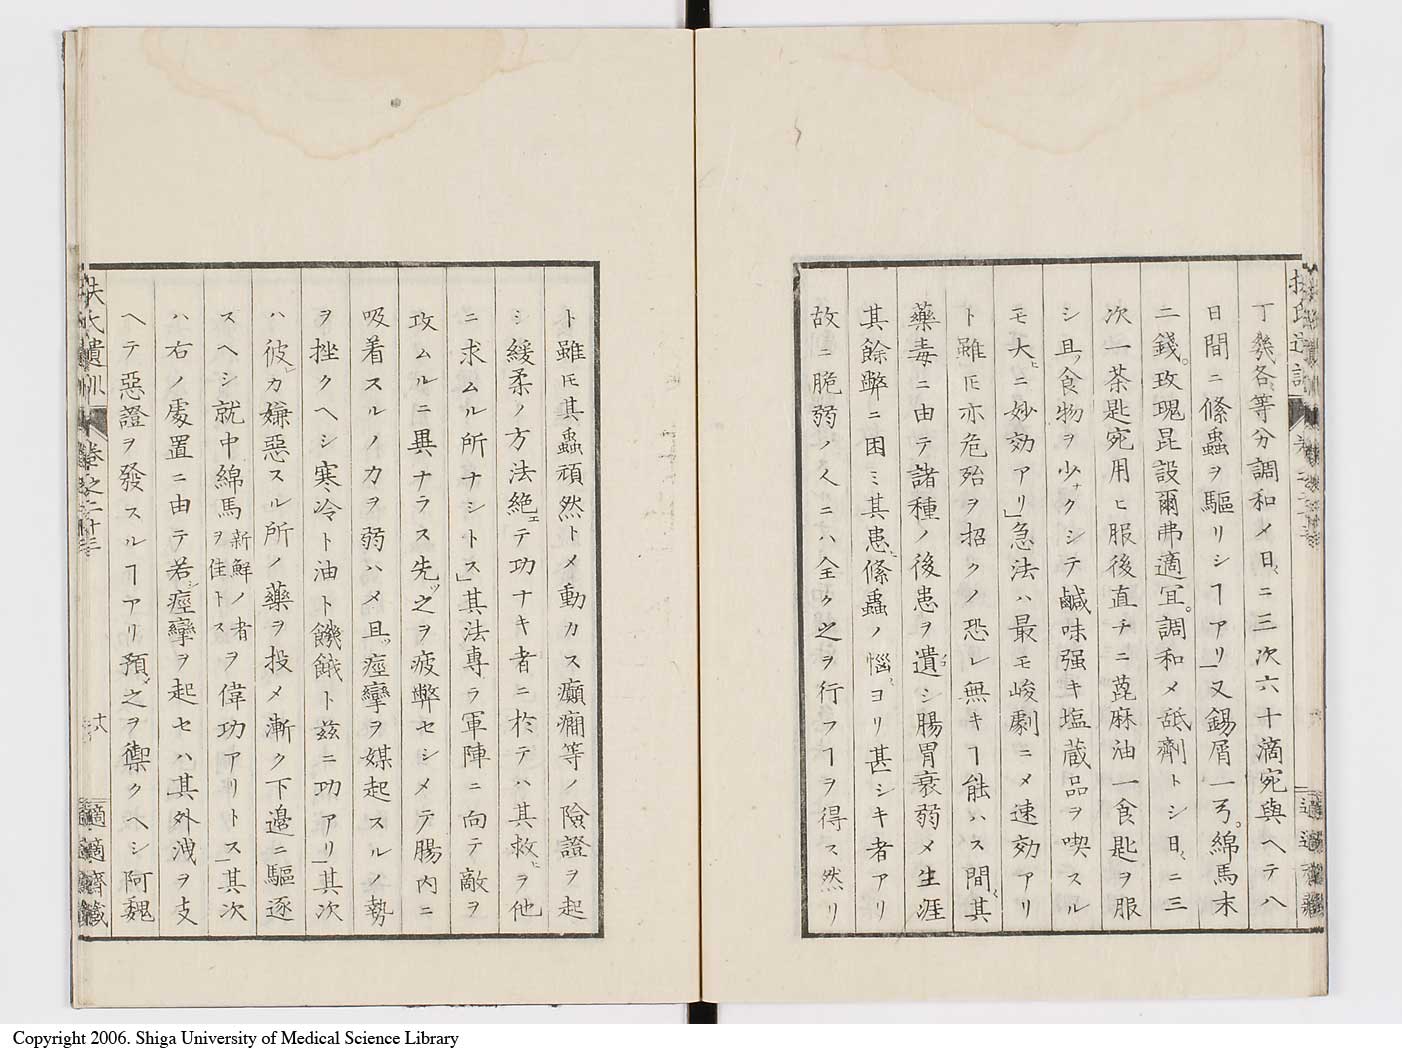 丁幾各〻等分調和メ日〻ニ三次六十滴宛與ヘテ八
日間ニ絛蟲ヲ驅リシヿアリ」又錫屑一弓。綿馬末
二錢。玫瑰昆設爾弗適宜。調和メ舐劑トシ日〻ニ三
次一茶匙宛用ヒ服後直チニ蓖麻油一食匙ヲ服
シ且食物ヲ少ナクシテ鹹味强キ塩蔵品ヲ喫スル
モ大ヒニ妙効アリ」急法ハ最モ峻劇ニメ速効アリ
ト雖𪜈亦危殆ヲ招クノ恐レ無キヿ能ハス間〻其
藥毒ニ由テ諸種ノ後患ヲ遺シ腸胃衰弱メ生涯
其餘弊ニ困ミ其患ヒ絛蟲ノ惱〻ヨリ甚シキ者アリ
故ニ脆弱ノ人ニハ全ク之ヲ行フヿヲ得ス然リ
ト雖𪜈其蟲頑然トメ動カス癲癇等ノ險證ヲ起
シ緩柔ノ方法絶エテ功ナキ者ニ於テハ其救ヒヲ他
ニ求ムル所ナシトス」其法專ラ軍陣ニ向テ敵ヲ
攻ムルニ異ナラス先ツ之ヲ疲弊セシメテ腸内ニ
吸着スルノ力ヲ弱ハメ且ツ痙攣ヲ媒起スルノ勢
ヲ挫クヘシ寒冷ト油ト饑餓ト茲ニ功アリ」其次
ハ彼レカ嫌惡スル所ノ藥ヲ投メ漸ク下邉ニ驅逐
スヘシ就中綿馬新鮮ノ者ヲ佳トス偉功アリトス」其次
ハ右ノ處置ニ由テ若シ痙攣ヲ起セハ其外洩ヲ支
ヘテ惡證ヲ發スルヿアリ預メ之ヲ禦クヘシ阿魏
扶氏遺訓
卷之二十三
十八
適適齋藏
Copyright 2006. Shiga University of Medical Science Library